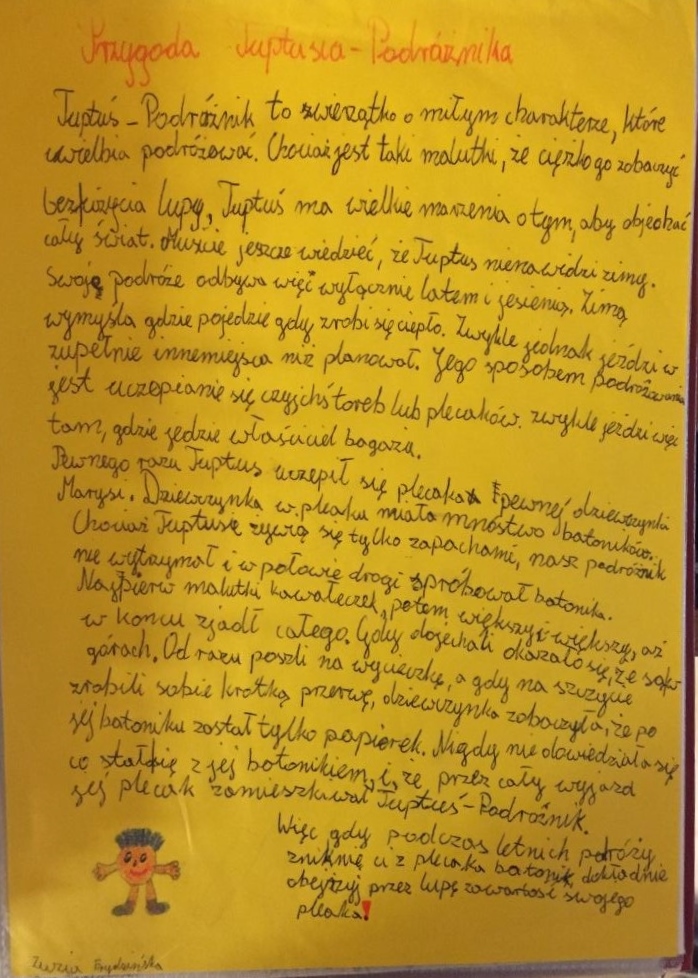 Przygoda Tuptusia-Podróżnika
Tuptuś-Podróżnik to zwierzątko o miłym charakterze, które
uwielbia podróżować. Chociaż jest taki malutki, że ciężko go zobaczyć
bez użycia lupy, Tuptuś ma wielkie marzenia o tym, aby objechać
cały świat. Musicie jeszcze wiedzieć, że Tuptuś nienawidzi zimy.
Swoje podróże odbywa więc wyłącznie latem i jesienią. Zimą
wymyśla gdzie pojedzie gdy zrobi się ciepło. Zwykle jednak jeździ w
zupełnie inne miejsca niż planował. Jego sposobem podróżowania
jest uczepianie się czyichś toreb lub plecaków. Zwykle jeździ więc
tam, gdzie jedzie właściciel bagażu.
Pewnego razu Tuptuś uczepił się plecaka pewnej dziewczynki
Marysi. Dziewczynka w plecaku miała mnóstwo batoników.
Chociaż Tuptusie żywią się tylko zapachami, nasz podróżnik
nie wytrzymał i w połowie drogi spróbował batonika.
Najpierw malutki kawałeczek, potem większy i większy, aż
w końcu zjadł całego. Gdy dojechali okazało się, że są w
górach. Od razu poszli na wycieczkę, a gdy na szczycie
zrobili sobie krótką przerwę, dziewczynka zobaczyła, że po
jej batoniku został tylko papierek. Nigdy nie dowiedziała się
co stało się z jej batonikiem, i, że przez cały wyjazd
jej plecak zamieszkiwał Tuptuś-Podróżnik.
Więc gdy podczas letnich podróży
zniknie ci z plecaka batonik, dokładnie
obejrzyj przez lupę zawartość swojego
plecaka!
Zuzia